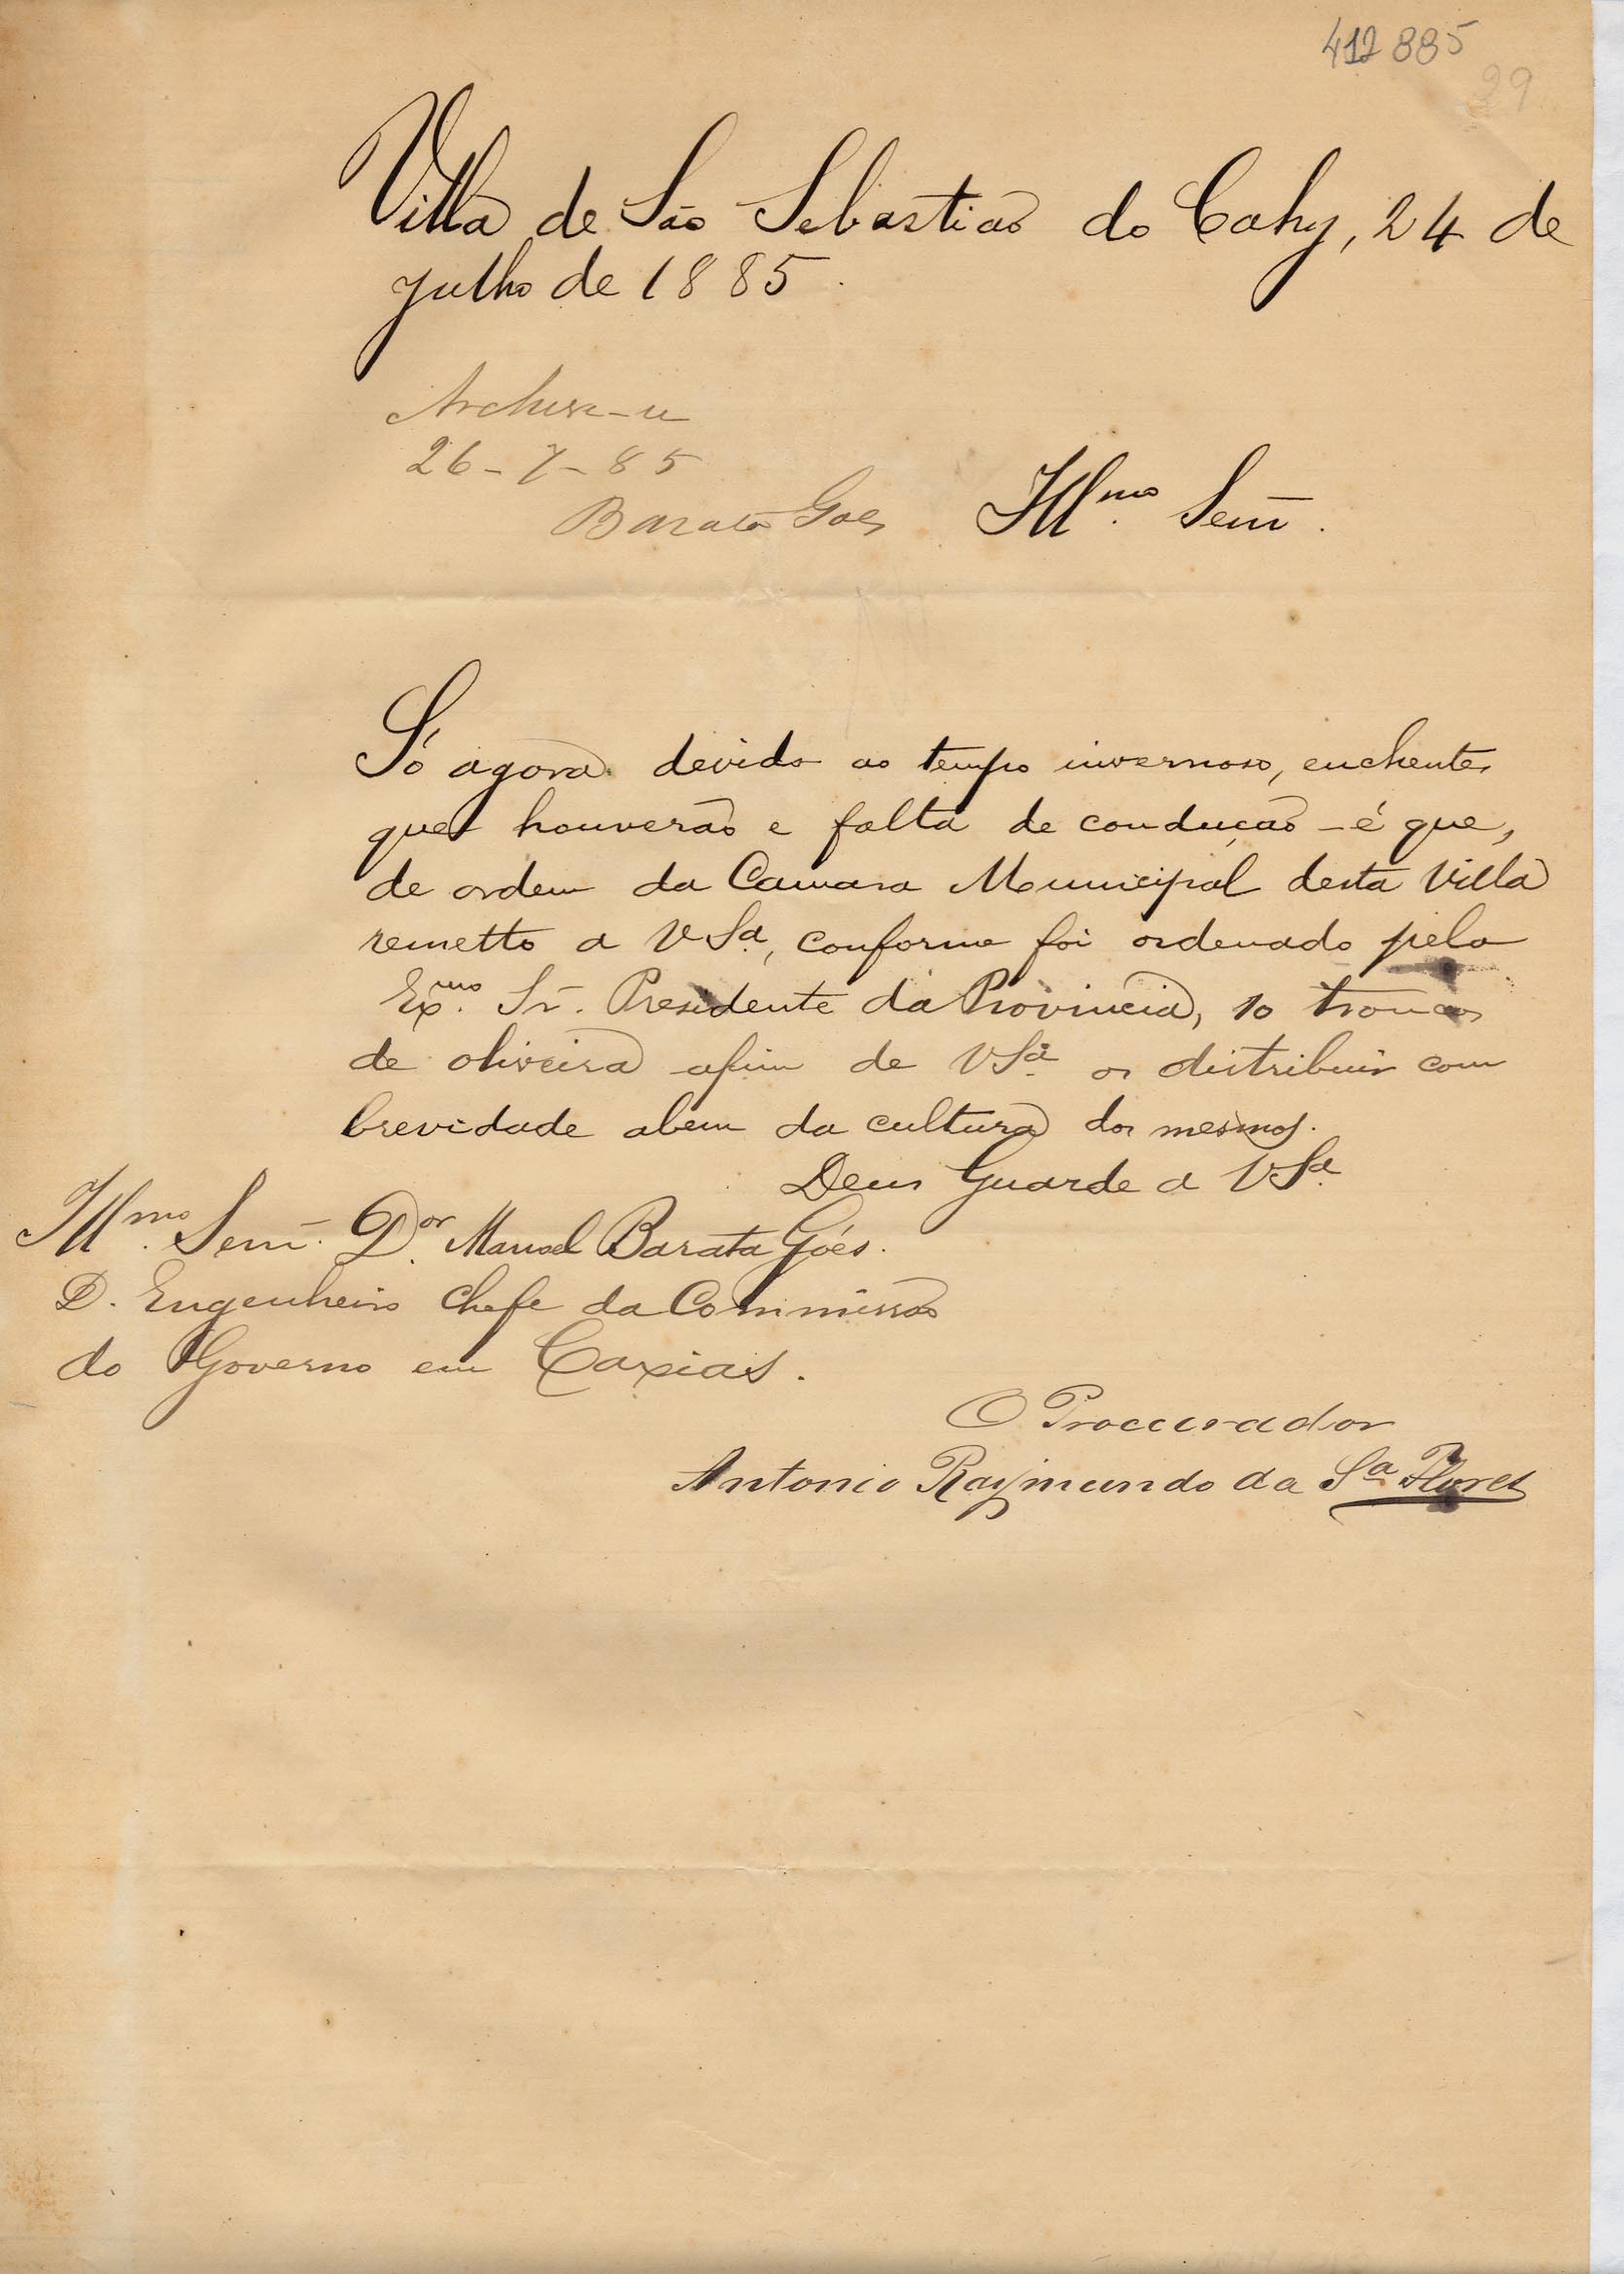 412885
29
Villa de São Sebastião do Cahy, 24 de
julho de 1885.
Archive-se
26-7-85
Barata Goes
Illmo. Senr.
Só agora devido ao tempo invernoso, enchentes
que houverão e falta de condução - é que,
de ordem da Camara Municipal desta Villa
remetto a VSa, conforme foi ordenado pelo
Exmo. Sr. Presidente da Provincia, 10 troncos
de oliveira afim de VSa os distribuir com
brevidade abem da cultura dos mesmos.
Deus Guarde a VSa
Illmo. Senr. Dor. Manoel Barata Góes.
D. Engenheiro Chefe da Commissão
do Governo em Caxias.
O Procurador
Antonio Raymundo da Sa Flores